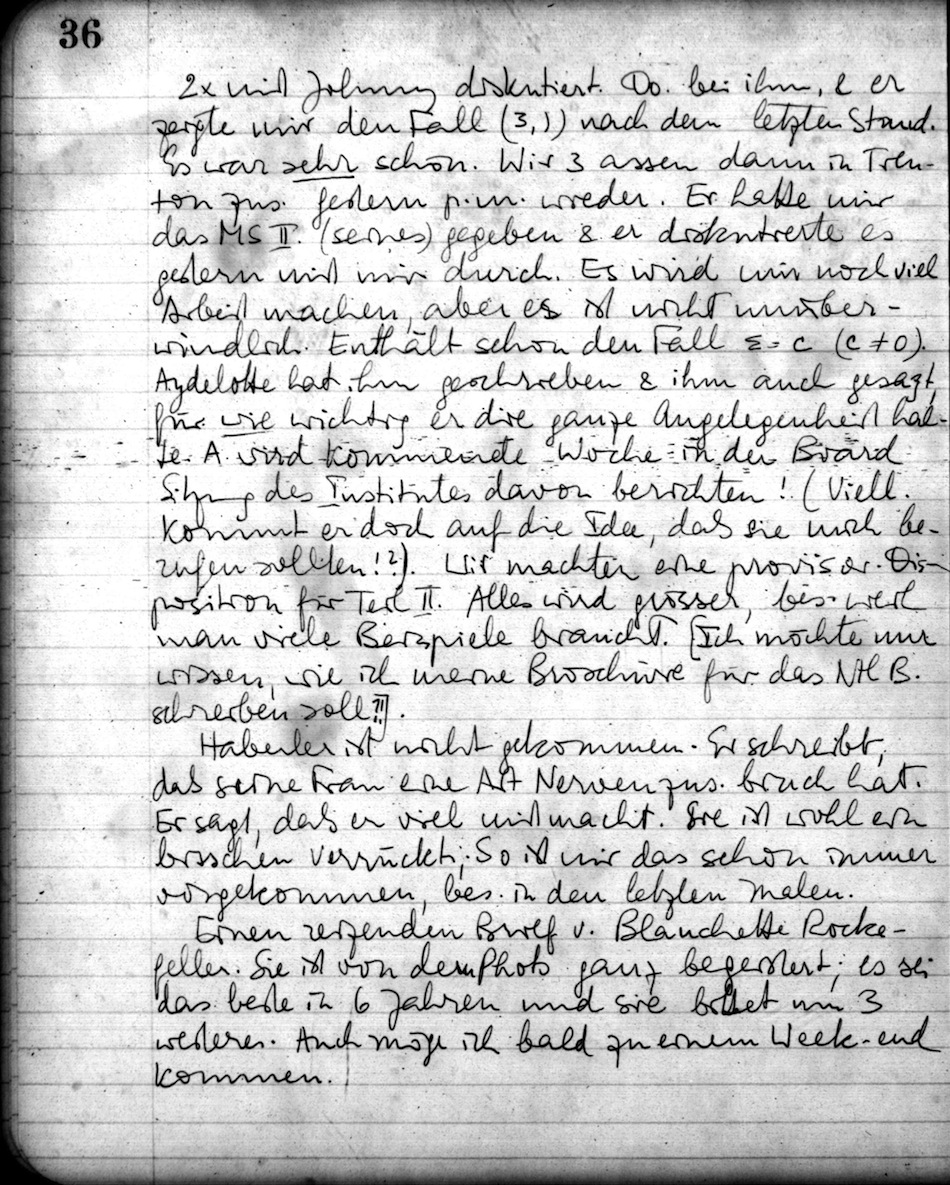 36
2x mit Johnny diskutiert. Do. bei ihm, & er
zeigte mir den Fall (3,1) nach dem letzten Stand.
Es war sehr schön. Wir 3 assen dann in Tren-
ton zus. Gestern p.m. wieder. Er hatte mir
das MS II. (seines) gegeben & er diskutierte es
gestern mit mir durch. Es wird mir noch viel
Arbeit machen, aber es ist nicht unüber-
windlich. Enthält schon den Fall Σ = c (c ≠ 0).
Aydelotte hat ihm geschrieben & ihm auch gesagt,
für wie wichtig er die ganze Angelegenheit hal-
te. A. wird kommende Woche in der Board
Sitzung des Institutes davon berichten! (Viell.
kommt er doch auf die Idee, dass sie mich be-
rufen sollten!?). Wir machten eine provisor. Dis-
position für Teil II. Alles wird grösser, bes. weil
man viele Beispiele braucht. [Ich möchte nur
wissen, wie ich meine Broschüre für das NHB.
schreiben soll?!].
Haberler ist nicht gekommen. Er schreibt,
dass seine Frau eine Art Nervenzus.bruch hat.
Er sagt, dass er viel mitmacht. Sie ist wohl ein
bisschen verrückt; So ist mir das schon immer
vorgekommen, bes. in den letzten Malen.
Einen reizenden Brief v. Blanchette Rocke-
feller. Sie ist von dem Photo ganz begeistert; es sei
das beste in 6 Jahren und sie bittet um 3
weitere. Auch möge ich bald zu einem Week-end
kommen.